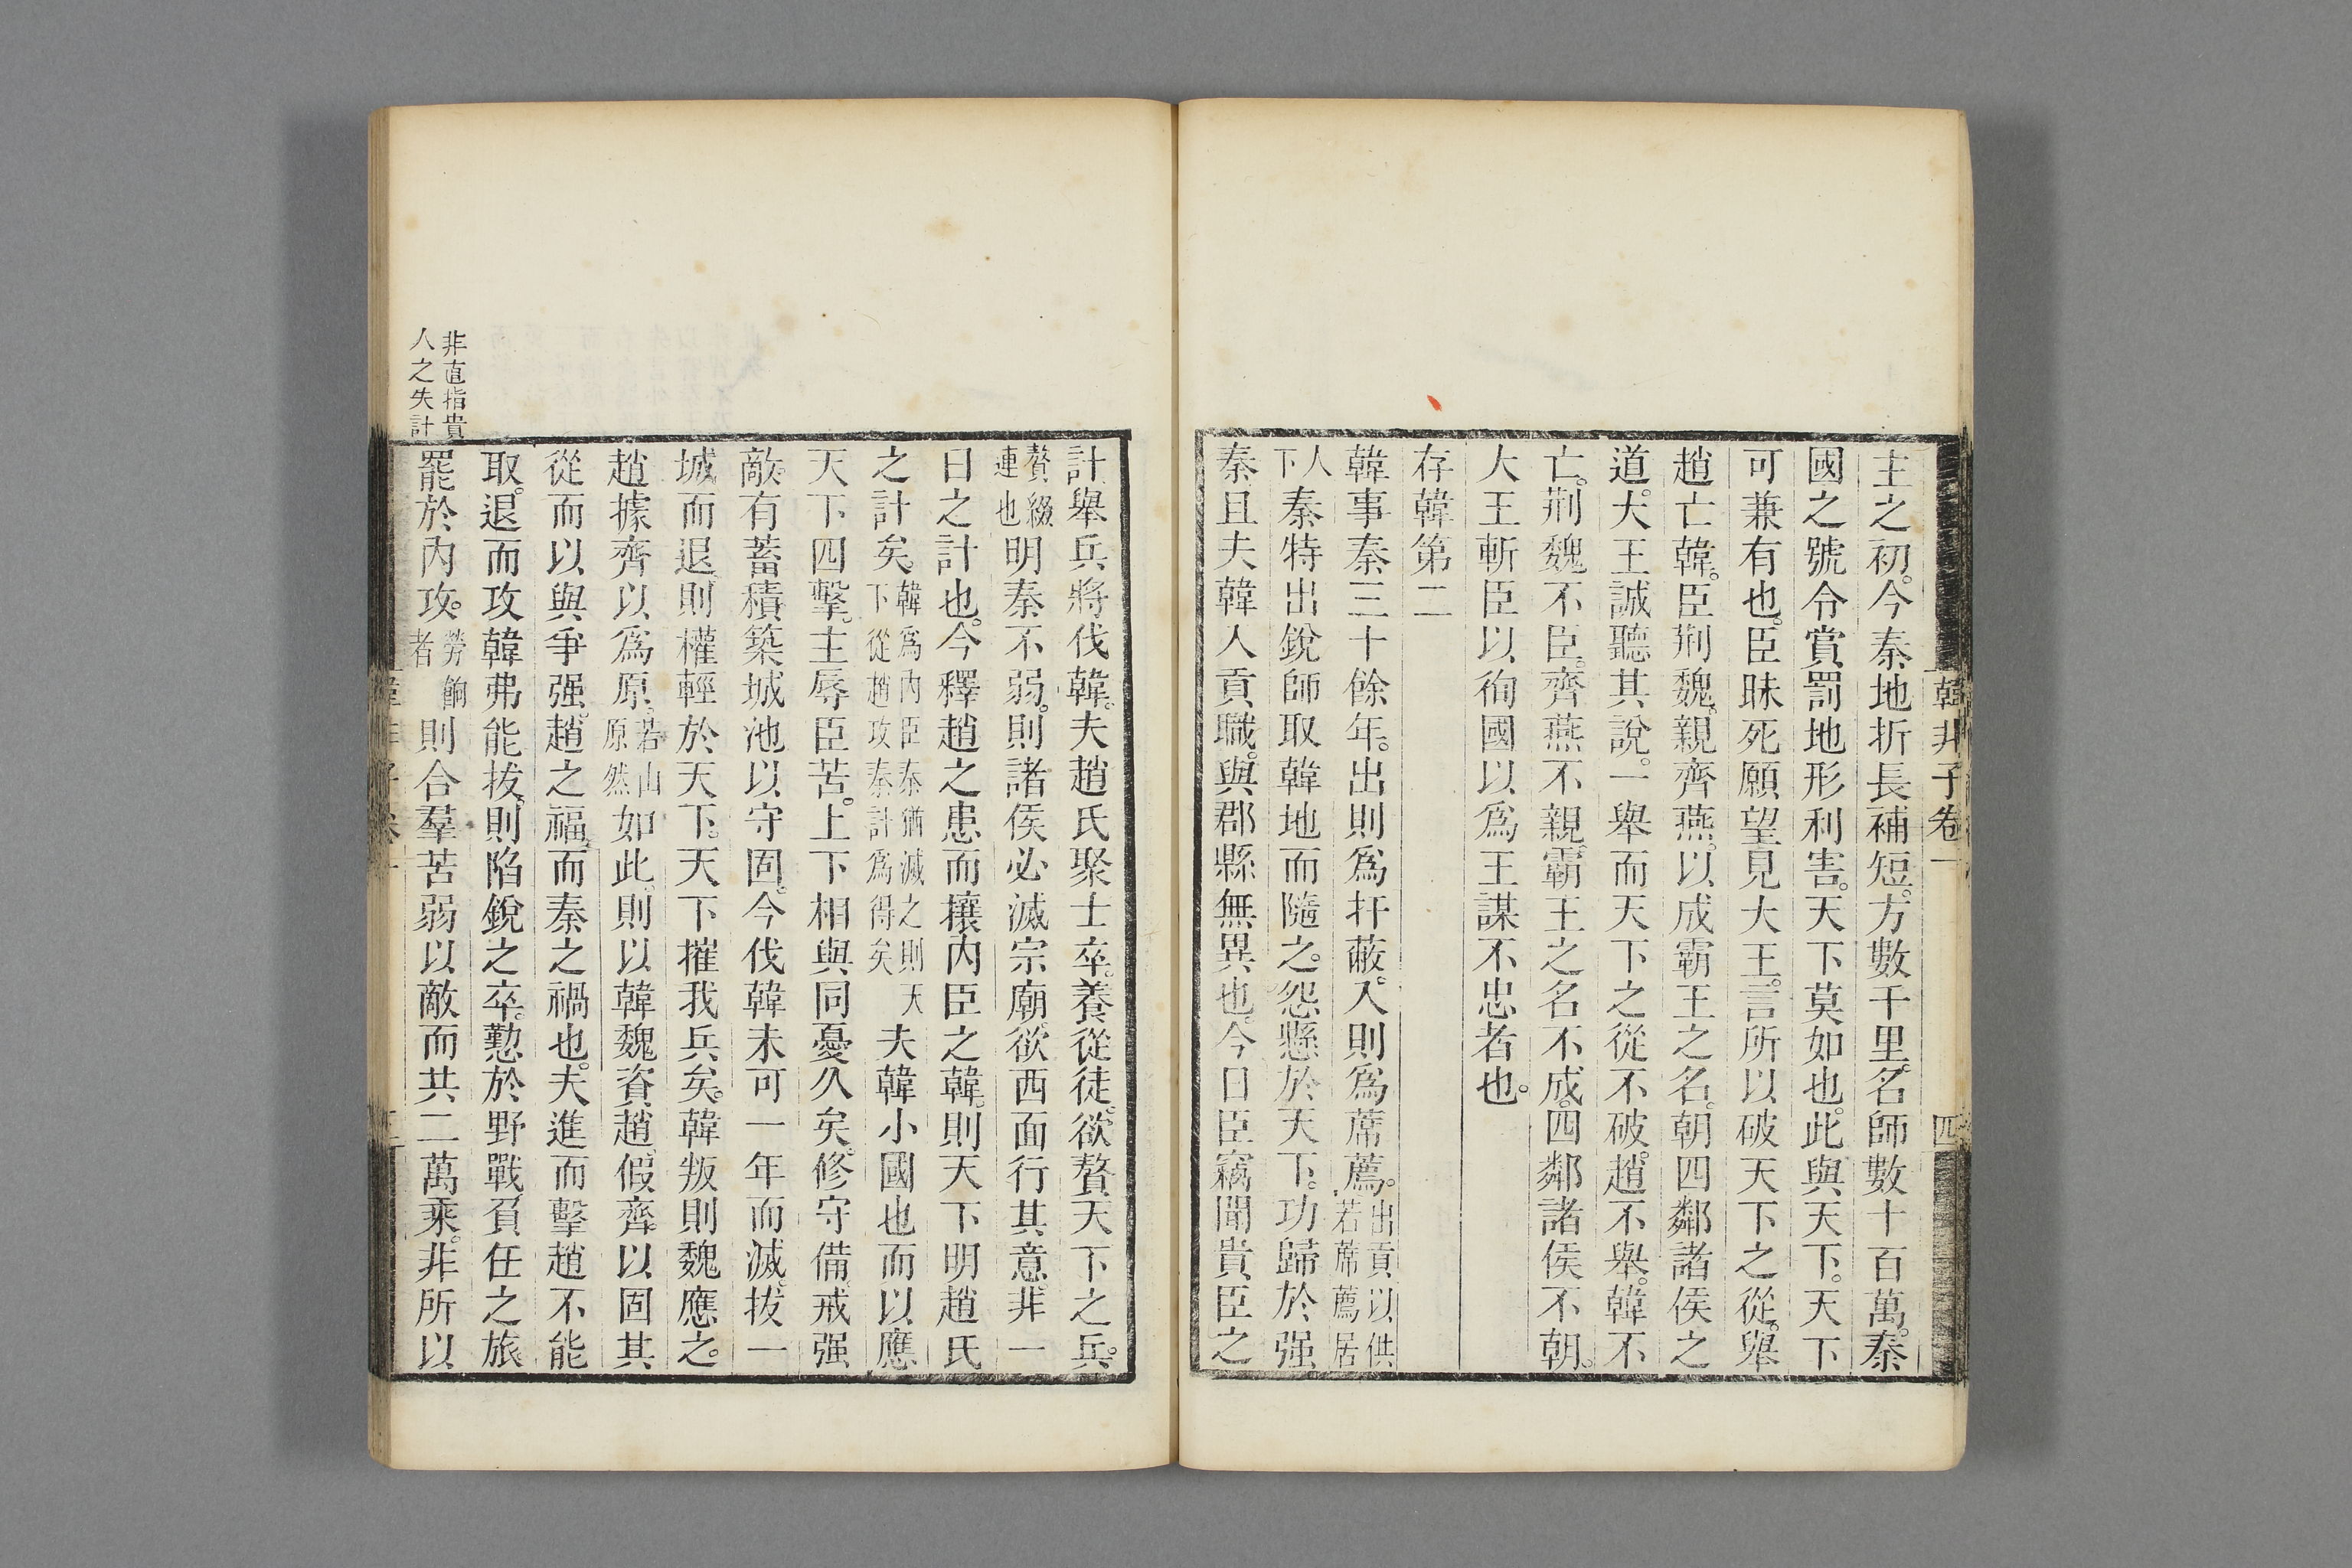 韓非子卷一
四
主之初。今秦地折長補短。方數千里。名師數十百萬。秦
國之號令賞罰地形利害。天下莫如也。此與天下。天下
可兼有也。臣昧死願望見大王。言所以破天下之從。舉
趙亡韓。臣荆魏。親齊燕。以成霸王之名。朝四鄰諸侯之
道。大王誠聽其說。一舉而天下之從不破。趙不舉。韓不
亡。荆魏不臣。齊燕不親。霸王之名不成。四鄰諸侯不朝。
大王斬臣以徇國以爲王謀不忠者也。
存韓第二
韓事秦三十餘年。出則爲扞蔽。入則爲蓆薦。出貢以供若蓆薦居
人下秦特出銳師取韓地而隨之。怨懸於天下。功歸於强
秦且夫韓入貢職。與郡縣無異也。今日臣竊聞貴臣之
計舉兵將伐韓。夫趙氏聚士卒。養從徒。欲贅天下之兵。
贅綴連也明秦不弱。則諸侯必滅宗廟。欲西面行其意。非一
日之計也。今釋趙之患而攘內臣之韓。則天下明趙氏
之計矣。韓爲內臣秦猶滅之則天下從趙攻秦計爲得矣夫韓小國也而以應
天下四擊。主辱臣苦。上下相與同憂久矣。修守備。戒强
敵。有蓄積築城池以守固。今伐韓未可一年而滅。拔一
城而退。則權輕於天下。天下摧我兵矣。韓叛則魏應之。
趙據齊以爲原。若山原然如此。則以韓魏資趙。假齊以固其
從而以與爭强。趙之福。而秦之禍也。夫進而擊趙不能
取。退而攻韓弗能拔。則陷銳之卒。懃於野戰負任之旅。
罷於內攻。勞餉者則合羣苦弱以敵而共二萬乘。非所以
非直指貴
人之失計